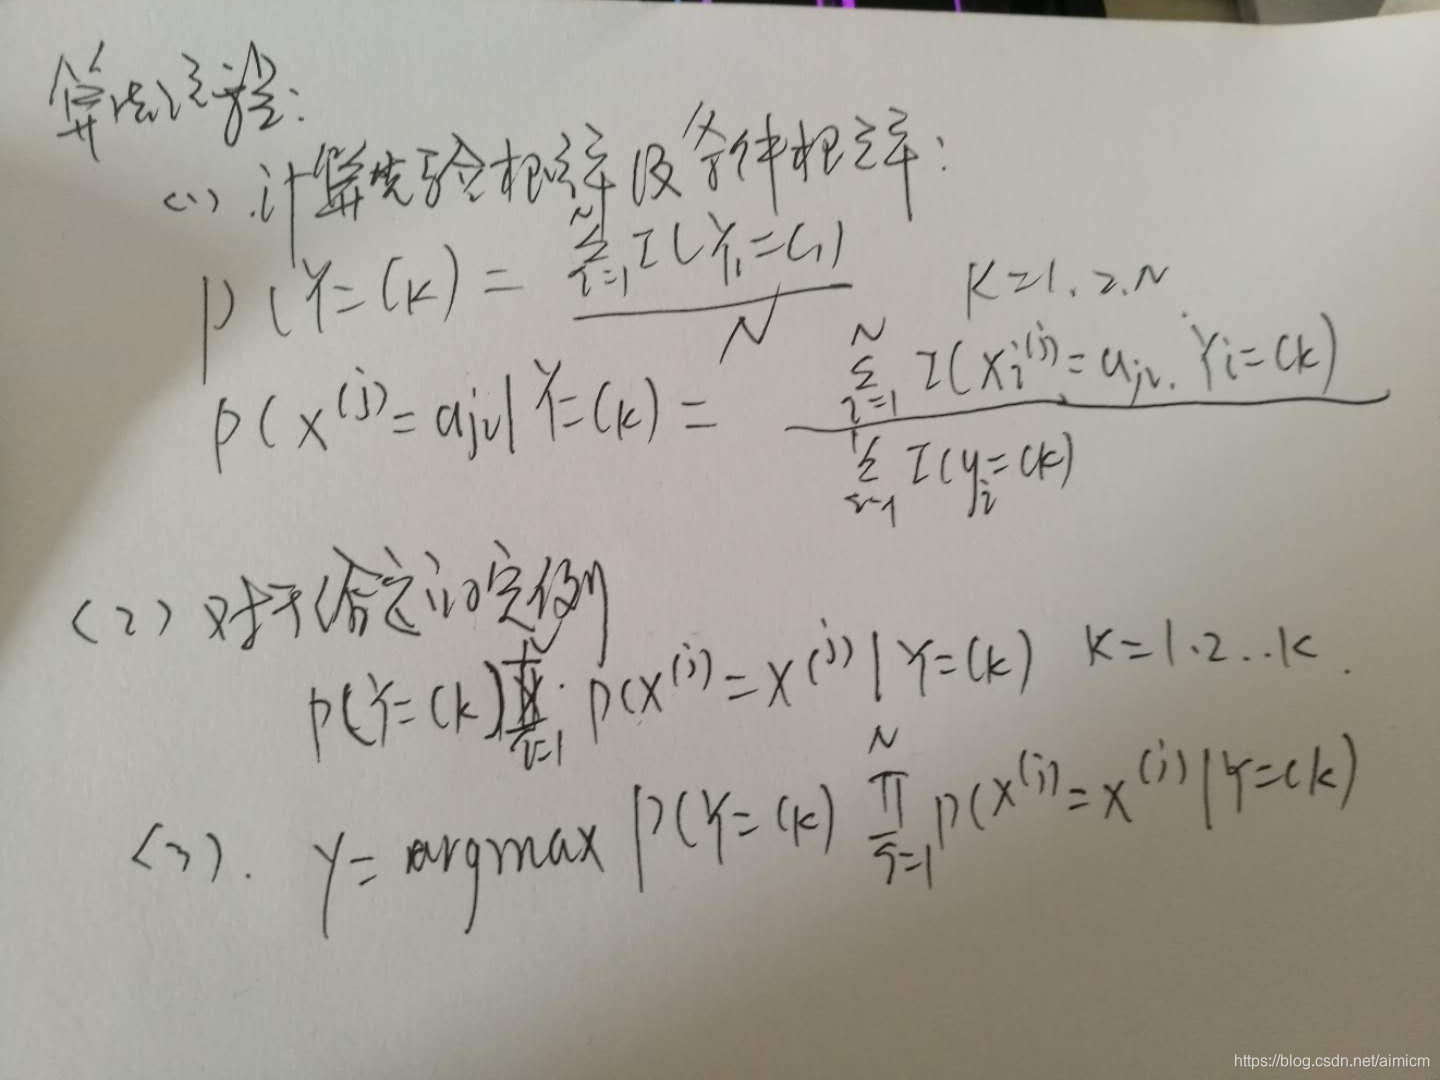 算法流程:
(1) 计算先验概率及条件概率:
P(Y=Ck) = \frac{\sum_{i=1}^{N} I(Y_i=C_1)}{N} K=1.2.N
P(X^{(j)}=a_{jl}|Y=Ck) = \frac{\sum_{i=1}^{N} I(X_i^{(j)}=a_{jl}, Y_i=Ck)}{\sum_{i=1} I(y_i=Ck)}
(2) 对于给定的实例
P(Y=Ck) ∏_{i=1} P(X^{(j)}=X^{(j)}|Y=Ck) K=1.2..K.
(3). y= argmax P(Y=Ck) ∏_{j=1}^{N} P(X^{(j)}=X^{(j)}|Y=Ck)
https://blog.csdn.net/aimicm